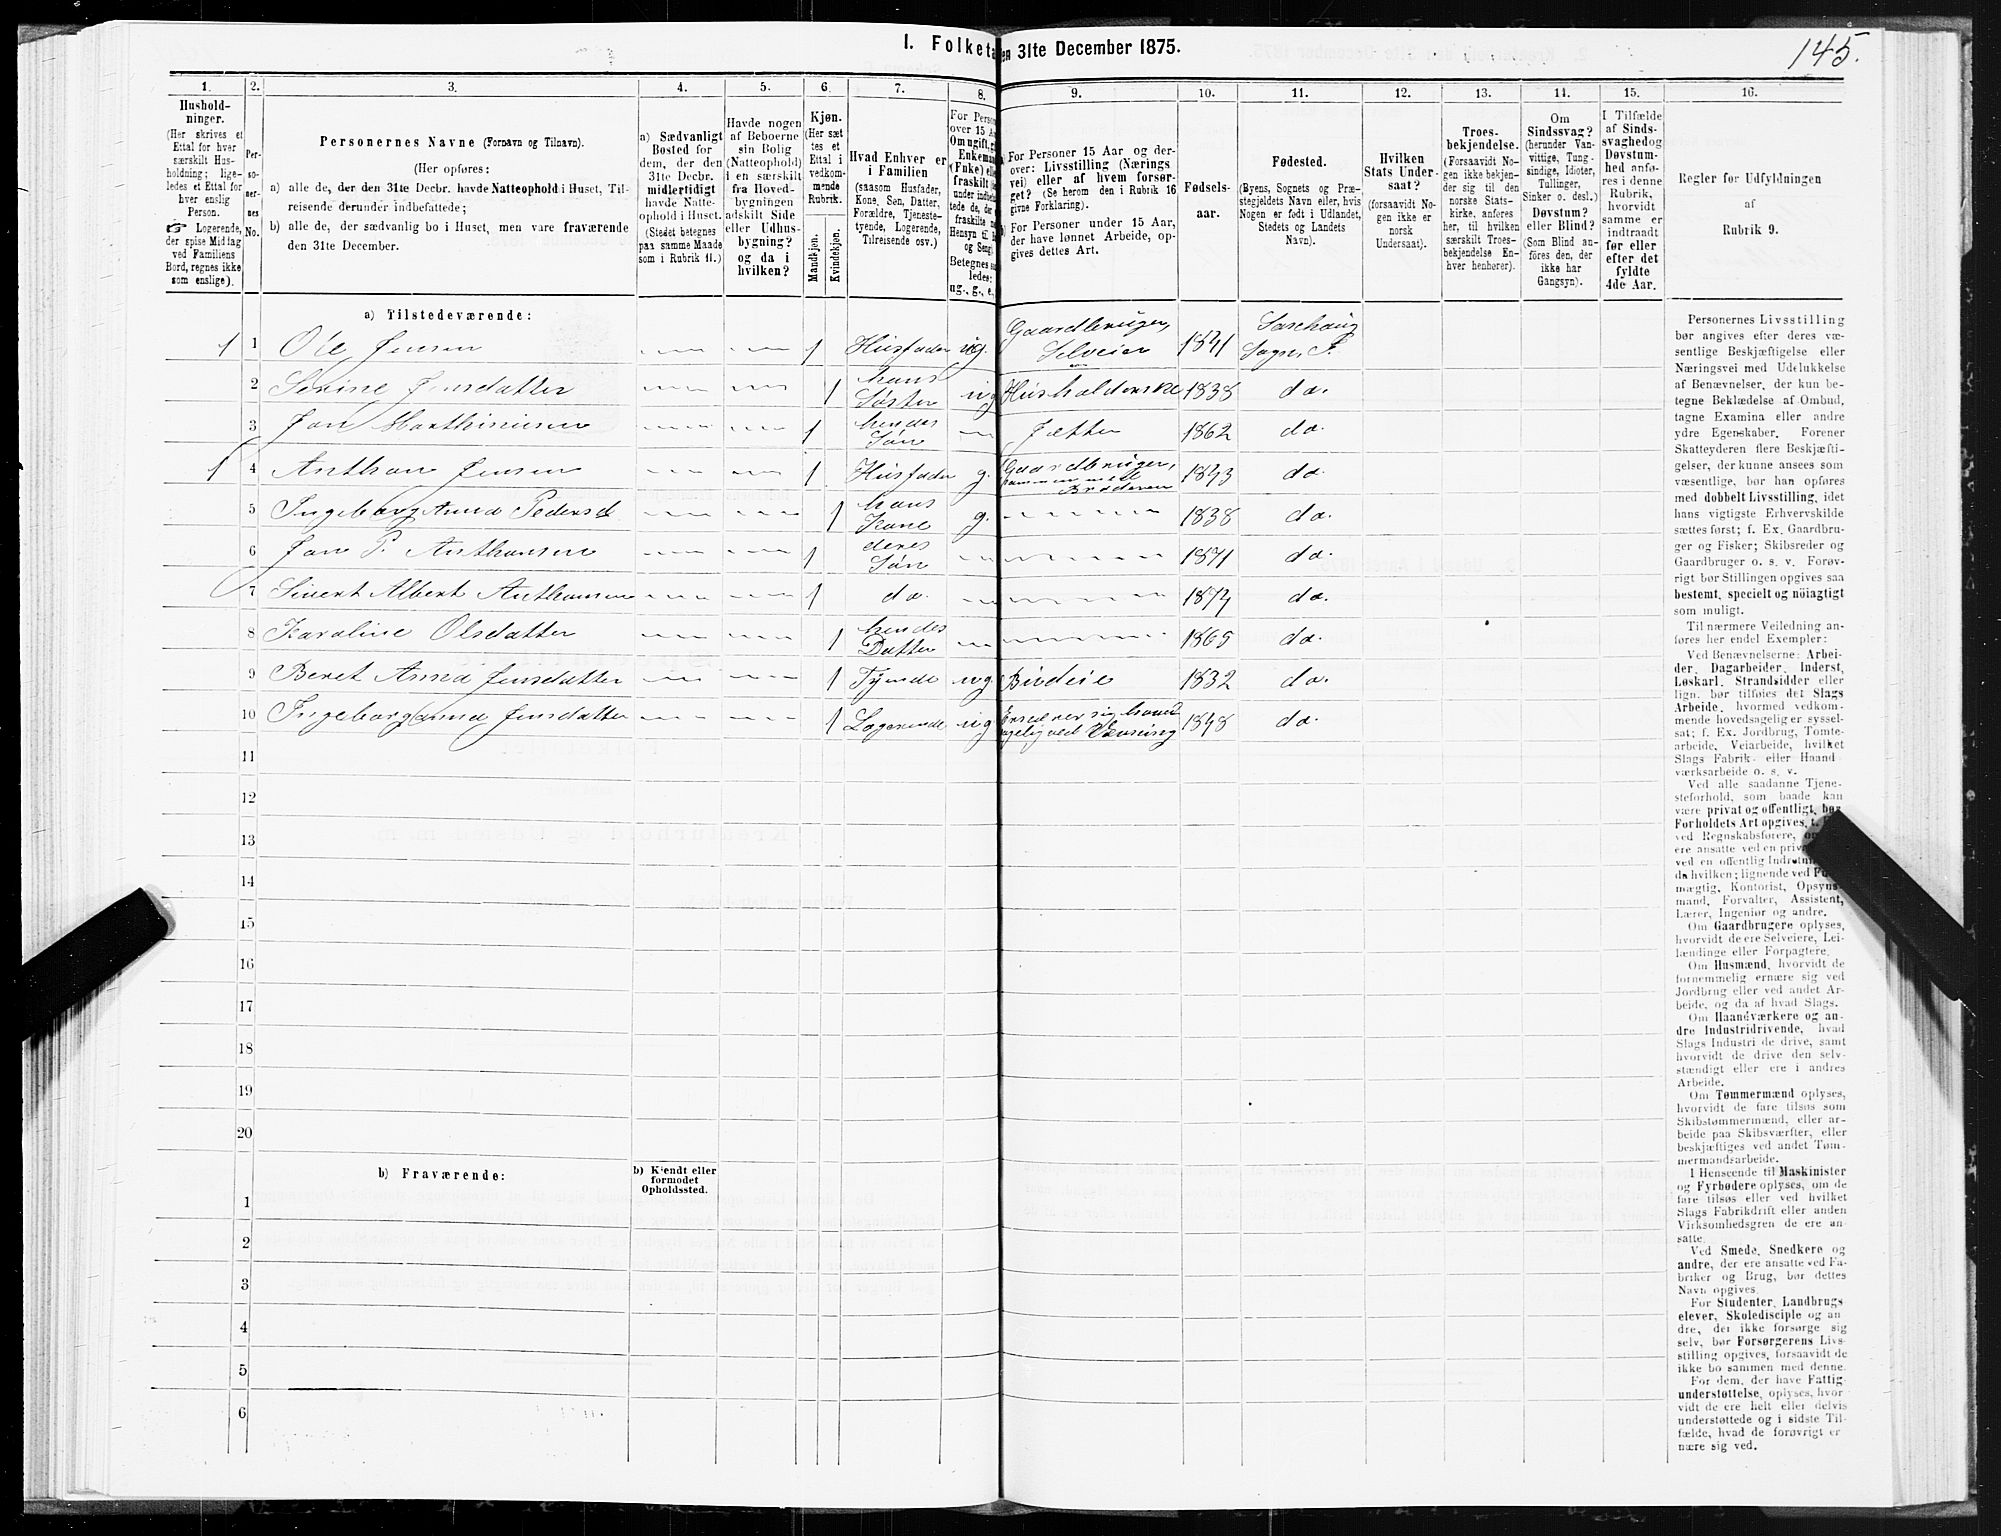 I. Folketa
en 31te December 1875.
145.
1.
2.
3.
4.
5.
6.
7.
8.
9.
10.
11.
12.
13.
14.
15.
16.
Hushold-
ninger.
(Her skrives et
Ettal for hver
særskilt Hus-
holdning; lige-
ledes et Ettal for
hver enslig
Person.
☞ Logerende,
der spise Middag
ved Familiens
Bord, regnes ikke
som enslige).
Per-
so-
ner-
nes
No.
Personernes Navne (Fornavn og Tilnavn).
(Her opføres:
a) alle de, der den 31te Decbr. havde Natteophold i Huset, Til-
reisende derunder indbefattede;
b) alle de, der sædvanlig bo i Huset, men vare fraværende
den 31te December.
a) Sædvanligt
Bosted for
dem, der den
31te Decbr.
midlertidigt
havde Natte-
ophold i Huset.
(Stedet betegnes
paa samme Maade
som i Rubrik 11.)
Havde nogen
af Beboerne
sin Bolig
(Natteophold)
i en særskilt
fra Hoved-
bygningen
adskilt Side
eller Udhus-
bygning?
og da i
hvilken?
Kjøn.
(Her sæt
tes et
Ettal i
vedkom-
mende
Rubrik.
Mandkjøn.
Kvindekjøn.
Hvad Enhver er
i Familien
(saasom Husfader,
Kone, Søn, Datter,
Forældre, Tjeneste-
tyende, Logerende,
Tilreisende osv.)
For Person
over 15 Aa
Om ugift, g
Enkeman
(Enke) elle
fraskilt
Betegnes sa
ledes:
ug., g., e.,
a) For Personer 15 Aar og der-
over: Livsstilling (Nærings
vei) eller af hvem forsør-
get? (Se herom den i Rubrik 16
givne Forklaring).
b) For Personer under 15 Aar,
der have lønnet Arbeide, op-
gives dettes Art.
Fødsels-
aar.
Fødested.
(Byens, Sognets og Præ-
stegjeldets Navn eller, hvis
Nogen er født i Udlandet,
Stedets og Landets
Navn).
Hvilken
Stats Under-
saat?
(forsaavidt No-
gen ikke er
norsk
Undersaat).
Troes-
bekjendelse.
(Forsaavidt No-
gen ikke bekjen-
der sig til den
norske Stats-
kirke, anføres
her, til hvilken
særskilt Troes-
bekjendelse En-
hver henhører).
Om
Sindssvag?
(herunder Van-
vittige, Tung-
sindige, Idioter,
Tullinger,
Sinker o. desl.)
Døvstum?
eller Blind?
(Som Blind an-
føres den, der
ikke har
Gangsyn).
I Tilfælde
af Sinds-
svaghed og
Døvstum-
hed anfø-
res i denne
Rubrik,
hvorvidt
samme er
indtraadt
før eller
efter det
fyldte
4de Aar.
Regler for Udfyldningen
af
Rubrik 9.
a) Tilstedeværende:
1 1 Ole Jensen 1 Husfader ug. Gaardbruger, Selveier 1841 Sogn, P.
2 Serine Jensdatter 1 hans Søster ug Husholderske 1838 do.
3 Jon Marthinusen 1 hendes Søn 1862 do.
1 4 Anthon Jensen 1 Husfader g. Gaardbruger, sammen med Broderen 1843 do.
5 Ingeborg Anna Pedersd 1 hans Kone g. 1838 do.
6 Jon P. Anthonsen 1 deres Søn 1871 do.
7 Sivert Albert Anthonsen 1 do. 1874 do.
8 Karoline Olsdatter 1 hendes Datter 1865 do.
9 Beret Anna Jensdatter 1 Tyende ug Budeie 1832 do.
10 Ingeborganna Jensdatter 1 Logerende ug Ernærer sig ved Vævning 1848 do.
11
12
13
14
15
16
17
18
19
20
b) Fraværende:
b) Kjendt eller
formodet
Opholdssted.
1
2
3
4
5
6
Personernes Livsstilling
bør angives efter deres væ-
sentlige Beskjæftigelse eller
Næringsvei med Udelukkelse
af Benævnelser, der kun be-
tegne Beklædelse af Ombud,
tagne Examina eller andre
ydre Egenskaber. Forener
Skatteyderen flere Beskjæfti-
gelser, der kunne ansees som
væsentlige, bør han opføres
med dobbelt Livsstilling, idet
hans vigtigste Erhvervskilde
sættes først; f. Ex. Gaardbru-
ger og Fisker; Skibsreder og
Gaardbruger o. s. v. Forøv-
rigt bør Stillingen opgives saa
bestemt, specielt og nöiagtigt
som muligt.
Til nærmere Veiledning an-
føres her endel Exempler:
Ved Benævnelserne: Arbei-
der, Dagarbeider, Inderst,
Løskarl, Strandsidder eller
lign. bør tilføies det Slags
Arbeide, hvormed vedkom-
mende hovedsagelig er syssel-
sat; f. Ex. Jordbrug, Tomte-
arbeide, Veiarbeide, hvilket
Slags Fabrik- eller Haand-
værksarbeide o. s. v.
Ved alle saadanne Tjene-
steforhold, som baade kan
være privat og offentligt, bør
Forholdets Art opgives, t.
ved Regnskabsførere,
ere ansatte ved en priva
ved en offentlig Indretni
da hvilken; lignende ved
mægtig, Kontorist, Opsyns-
mand, Forvalter, Assistent,
Lærer, Ingeniør og andre.
Om Gaardbrugere oplyses,
hvorvidt de ere Selveiere, Lei-
lændinge eller Forpagtere.
Om Husmænd, hvorvidt de
fornemmelig ernære sig ved
Jordbrug eller ved andet Ar-
beide, og da af hvad Slags.
Om Haandværkere og an-
dre Industridrivende, hvad
Slags Industri de drive, samt
hvorvidt de drive den selv-
stændigt eller ere i andres
Arbeide.
Om Tømmermænd oplyses,
hvorvidt de fare tilsøs som
Skibstømmermænd, eller ar-
beide paa Skibsværfter, eller
beskjæftiges ved andet Tøm-
mermandsarbeide.
I Henseende til Maskinister
og Fyrbødere oplyses, om de
fare tilsøs eller ved hvilket
Slags Fabrikdrift eller anden
Virksomhedsgren de ere an-
satte.
Ved Smede, Snedkere og
andre, der ere ansatte ved Fa-
briker og Brug, bør dettes
Navn opgives.
For Studenter, Landbrugs
elever, Skoledisciple og an-
dre, der ikke forsørge sig
selv, bør Forsørgerens Livs-
stilling opgives, forsaavidt de
ikke bo sammen med denne.
For dem, der have Fattig-
understøttelse, oplyses, hvor-
vidt de ere helt eller delvis
understøttede og i sidste Til-
fælde, hvad de forøvrigt er-
nære sig ved.